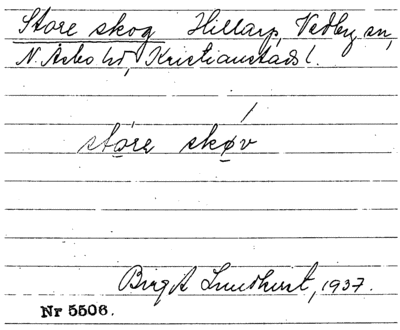 Store skog Hillarp, Vedby sn,
N. Åsbo hd, Kristianstads l.
stóre skøv
Birgit Lundkvist, 1937.
Nr 5506.